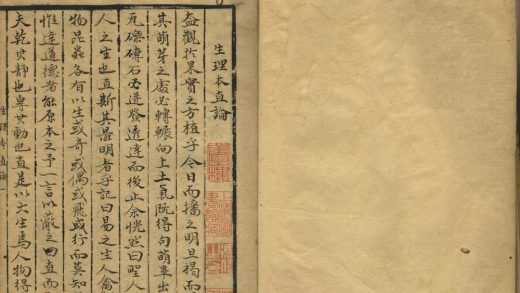 生理本直論
盍觀於果實之方植乎今日而播之明旦揭而
其萌芽之處必轉輾向上土氣既得句萌畢出
瓦礫磚石必迸發透達而後止余恍然曰聖人
人之生也直斯其最明者乎記曰易之生人禽
物昆蟲各有以生或奇或偶或飛或行而莫知
惟達道德者能原本之予一言以蔽之曰直而
夫乾其靜也專其動也直是以大生焉人物得
生理本直論